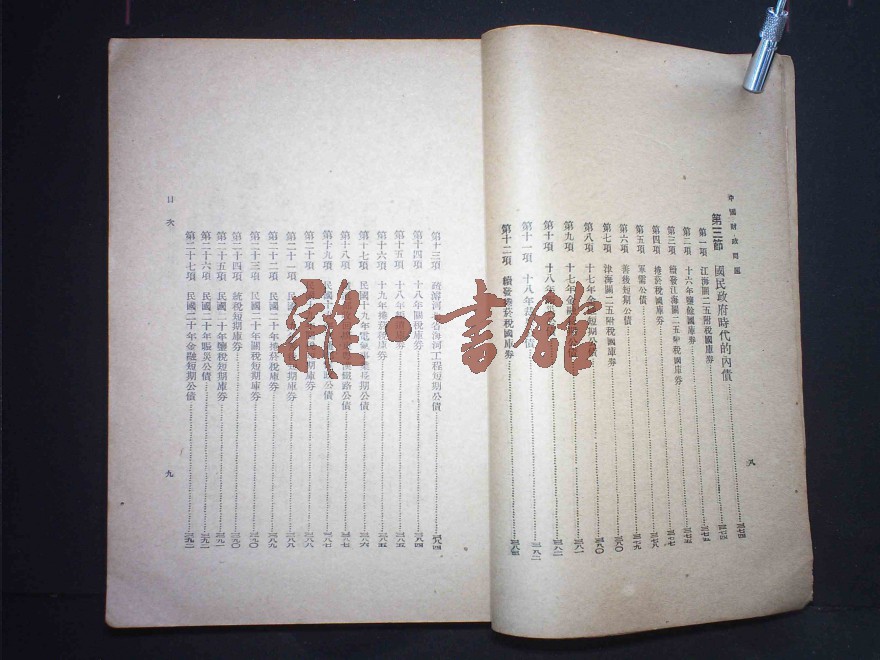 中國財政問題
第三節 國民政府時代的內債……三七四
第一項 江海關二五附稅國庫券……三七四
第二項 十六年鹽餘國庫券……三七五
第三項 續發江海關二五附稅國庫券……三七七
第四項 捲菸稅國庫券……三七八
第五項 軍需公債……三七九
第六項 善後短期公債……三八〇
第七項 津海關二五附稅國庫券……三八〇
第八項 十七年金融短期公債……三八一
第九項 十七年金融
第十項 十八年
第十一項 十八年
第十二項 續發捲菸稅國庫券
八
第十三項 疏濬河北省海河工程短期公債……三八四
第十四項 十八年關稅庫券……三八四
第十五項 十八年編遣庫券……三八五
第十六項 十九年捲菸庫券……三八五
第十七項 民國十九年電氣事業長期公債……三八六
第十八項 鐵路公債……三八七
第十九項 民國十 公債……三八七
第二十項 民國 庫券……三八八
第二十一項 民國 短期庫券……三八八
第二十二項 民國二十年捲菸庫券……三八九
第二十三項 民國二十年關稅短期庫券……三九〇
第二十四項 統稅短期庫券……三九〇
第二十五項 民國二十年鹽稅短期庫券……三九一
第二十六項 民國二十年賑災公債……三九二
第二十七項 民國二十年金融短期公債……三九二
目次
九
雜·書館